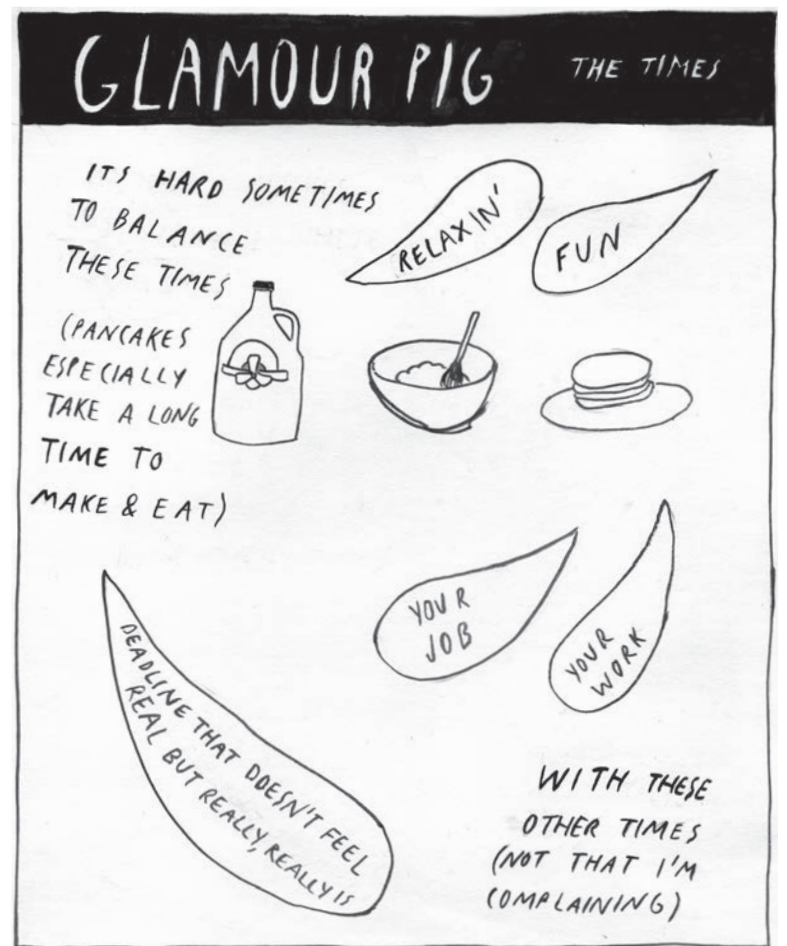 GLAMOUR PIG
THE TIMES
ITS HARD SOMETIMES
TO BALANCE
THESE TIMES
(PANCAKES
ESPECIALLY
TAKE A LONG
TIME TO
MAKE & EAT)
RELAXIN'
FUN
YOUR
JOB
YOUR
WORK
DEADLINE THAT DOESN'T FEEL
REAL BUT REALLY, REALLY IS
WITH THESE
OTHER TIMES
(NOT THAT I'M
COMPLAINING)